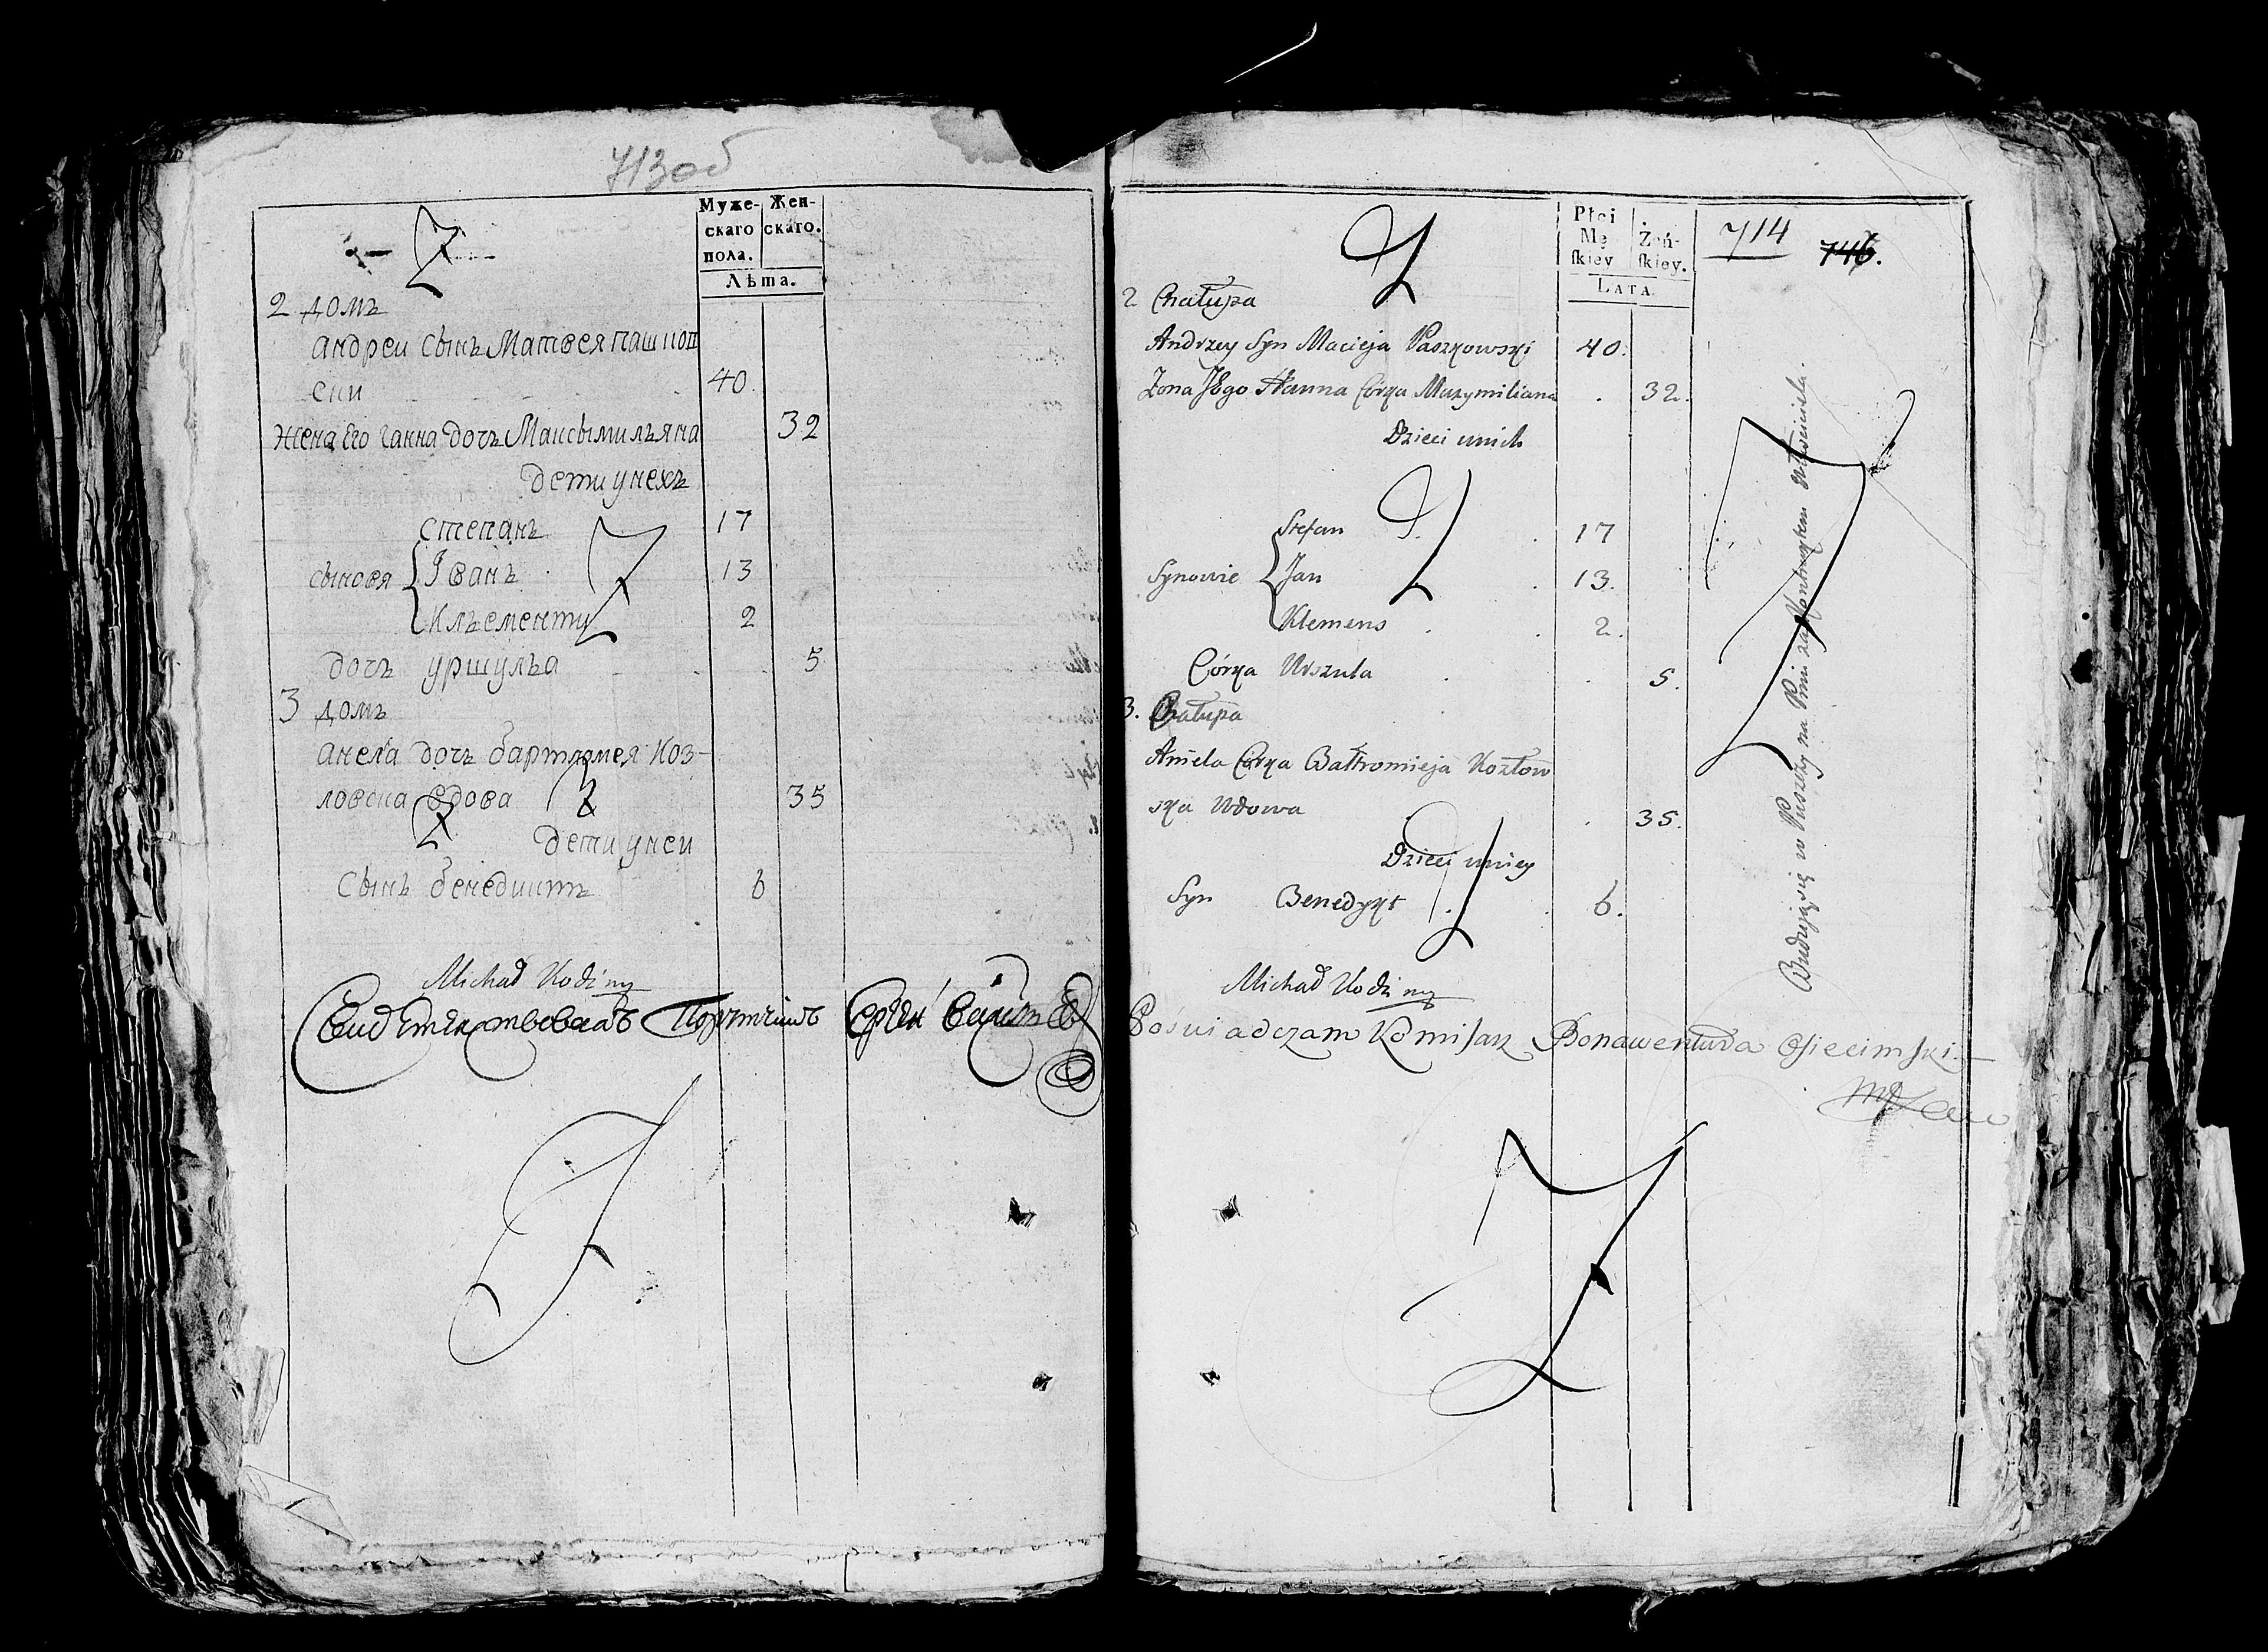 713об
Муже-
скаго
пола.
Жен-
скаго.
Лѣта.
2 домъ
андреи сынъ Матвея пашков
ски 40
жена Его ганна дочъ Максымильяна 32
дети унехъ
степанъ 17
сыновя Іванъ 13
Клъементи 2
дочъ уршулъа 5
3 домъ
анела дочъ бартломея Коз-
ловска вдова 35
дети унеи
сынъ бенедиктъ 6
Michał
Свидѣтелствовалъ Порутчикъ
714
746.
Płci
Mę
ſkiey
Żeń-
ſkiey.
LATA.
2 Chałupa
Andrzey Syn Macieja Paszkowski 40.
Żona Jego Hanna Córka Maxymiliana 32.
Dzieci unich
Stefan 17
Synowie Jan 13.
Klemens 2.
Córka Urszula 5.
3. Chałupa
Aniela Córka Bałtromieja Kozłow
ska Wdowa 35.
Dzieci uniey
Syn Benedykt 6.
Michał
Poświadczam Komiſarz Bonawentura Oſiecimſki
Budują się w Puszczy na Pniu za Kontraktem